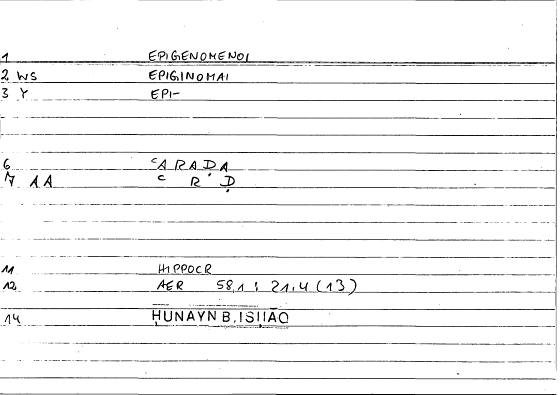 1 EPIGENOMENOI
2 WS EPIGINOMAI
3 Y EPI-
6 ʿARAḌA
7 AA ʿ R Ḍ
11 HIPPOCR
12 AER 58,1 : 21,4 (13)
14 ḤUNAYN B. ISḤĀQ